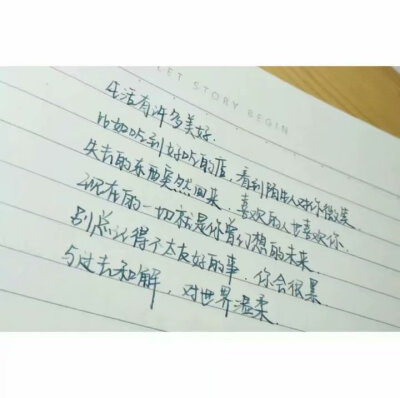 LET STORY BEGIN
生活有许多美好.
比如吃到好吃的店，看到陌生人对你微笑
失去的东西突然回来，喜欢的人也喜欢你.
现在的一切就是你曾幻想的未来
别总记得不太友好的事，你会很累
与过去和解，对世界温柔.